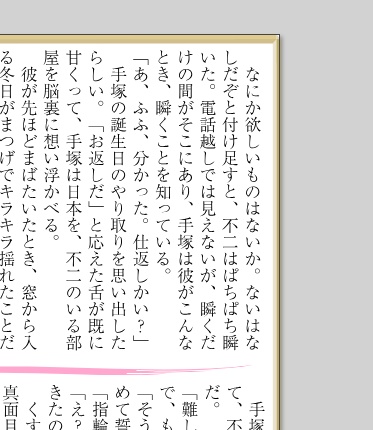 なにか欲しいものはないか。ないはな
しだぞと付け足すと、不二はぱちぱち瞬
いた。電話越しでは見えないが、瞬くだ
けの間がそこにあり、手塚は彼がこんな
とき、瞬くことを知っている。
「あ、ふふ、分かった。仕返しかい?」
手塚の誕生日のやり取りを思い出した
らしい。「お返しだ」と応えた舌が既に
甘くって、手塚は日本を、不二のいる部
屋を脳裏に想い浮かべる。
彼が先ほどまばたいたとき、窓から入
る冬日がまつげでキラキラ揺れたことだ
手塚
て、不
だ。
「難し
で、も
「そう
めて誓
「指輪
「え?
きたの
くす
真面目